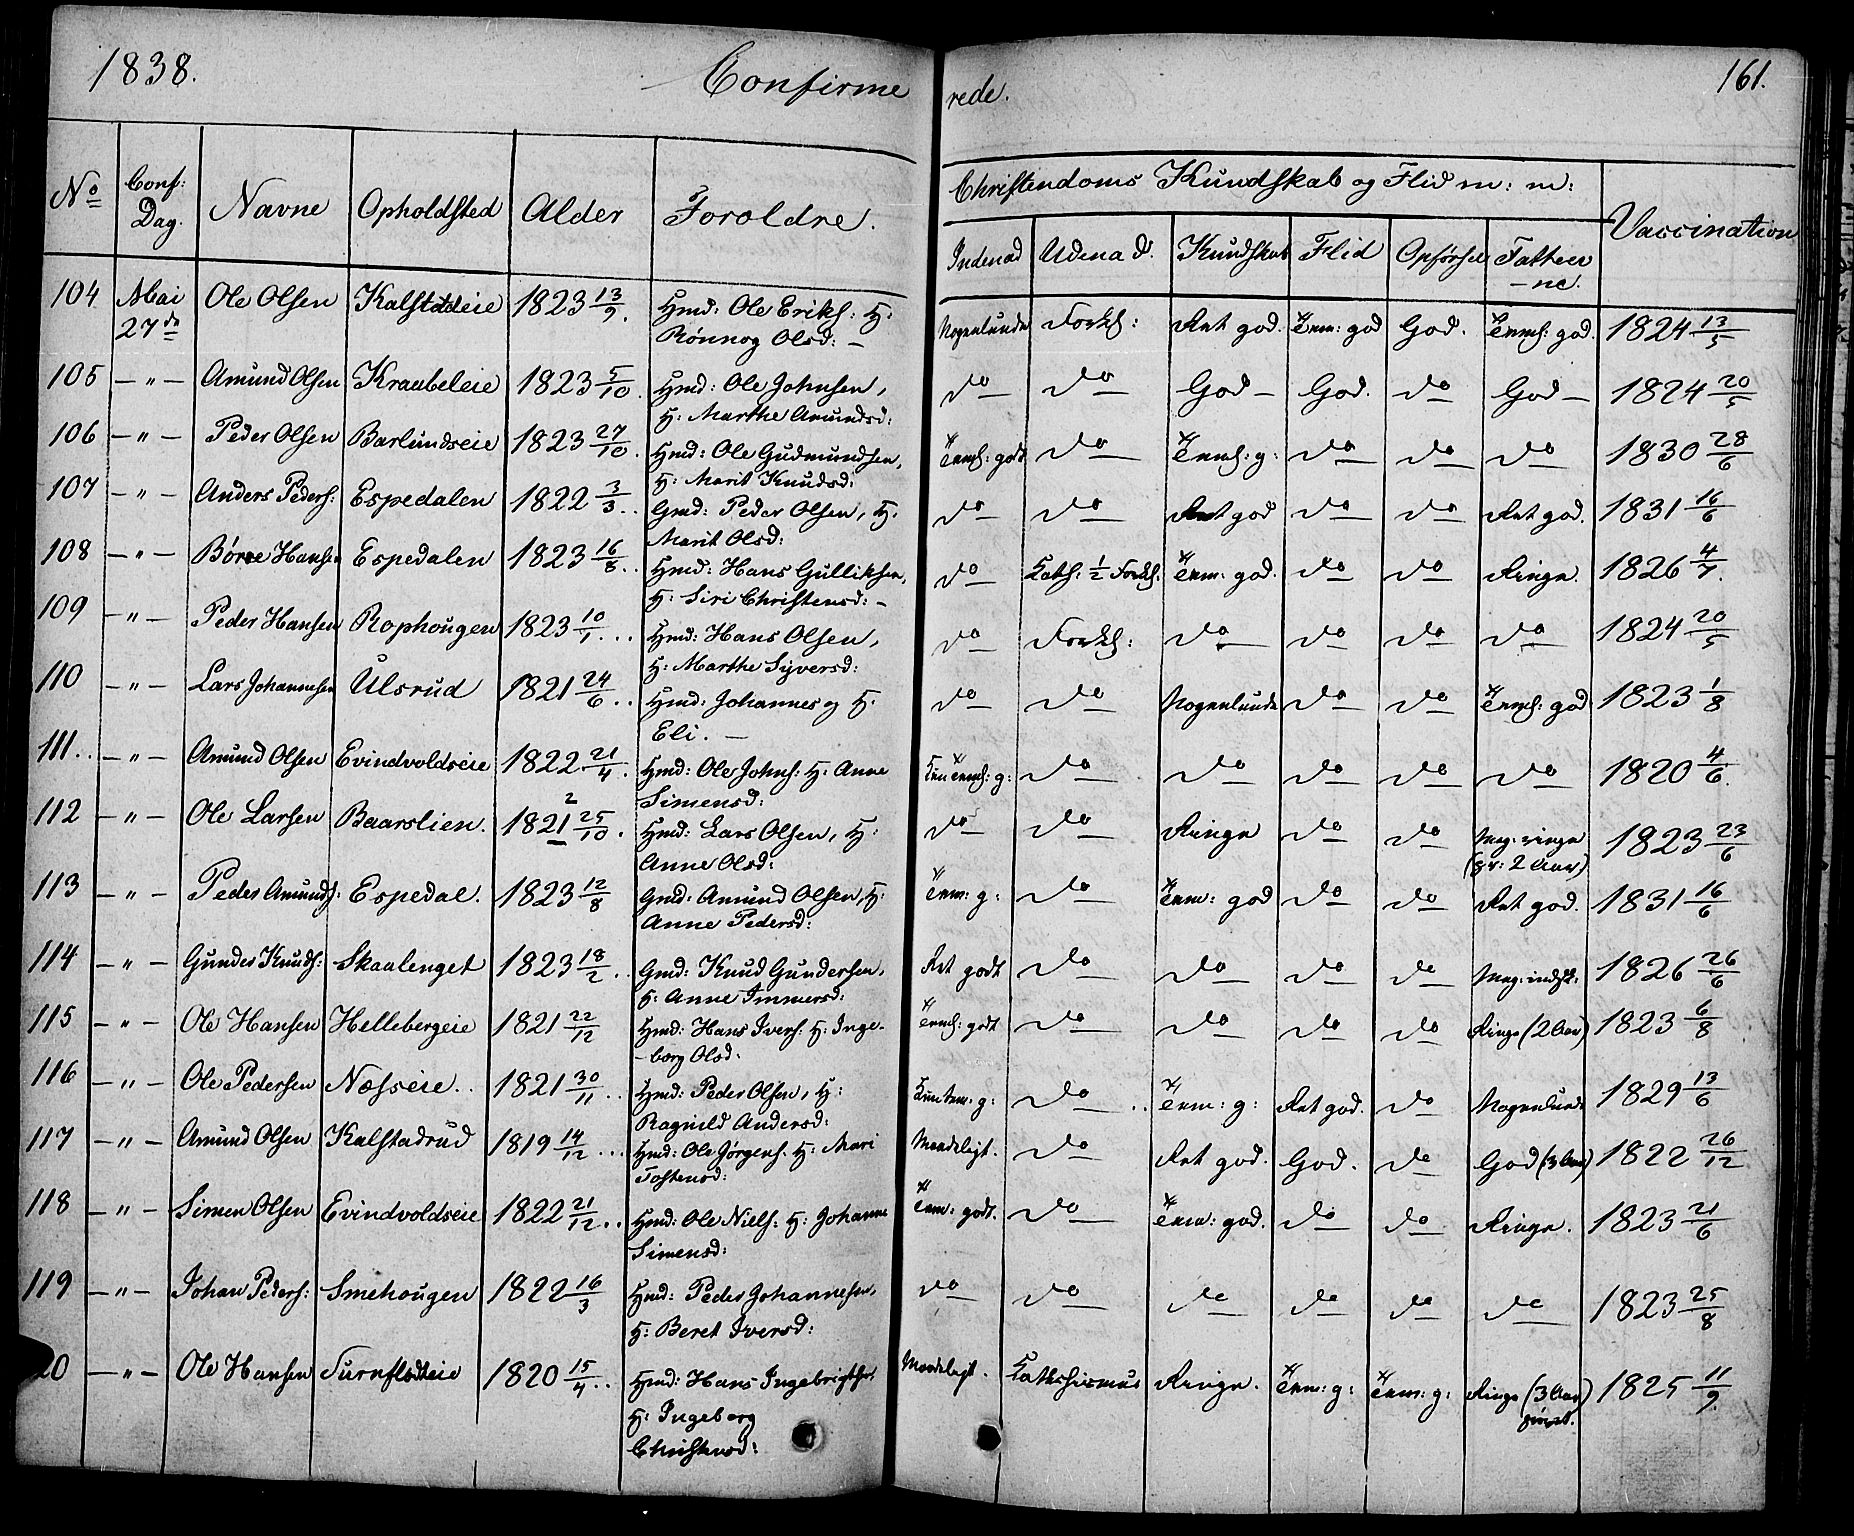 1838. Confirmerede. 161.
Christendoms Kundskab og Flid m: m:
No Conf: Dag. Navne Opholdsted Alder Foroldre. Indenad Udenad. Kundskab Flid Opførsel Fatteevne. Vaccination
104 Mai 27de Ole Olsen Kalstadeie 1823 13/9. Hmd: Ole Eriks: H: Nogenlunde Forkl: Ret god. Tem: god God. Teml: god. 1824 13/5
Rønnog Olsd: –
105 – " – Amund Olsen Kraabeleie 1823 5/10. Hmd: Ole Johnsen, do do God – God. do God – 1824 20/5
H: Marthe Amundsd:
106 – " – Peder Olsen Barlundseie 1823 27/10. Hmd: Ole Gudmundsen, Teml: godt do Teml: g: do do do 1830 28/6
H: Marit Knudsd:
107 – " – Anders Peders: Espedalen 1822 3/3.. Gmd: Peder Olsen, H. do do Ret god do do Ret god. 1831 16/6
Marit Olsd:
108 – " – Børre Hansen Espedalen 1823 16/8.. Hmd: Hans Gulliksen, do Kath: 1/2 Forkl. Tem: god. do do Ringe. 1826 4/7.
H: Siri Christensd: –
109 – " – Peder Hansen Rophougen 1823 10/1... Hmd: Hans Olsen, do Forkl: do do do do 1824 20/5
H: Marthe Syversd:
110 – " – Lars Johannesen Ulsrud 1821 24/6.. Hmd: Johannes og H. do do Nogenlunde do do Teml: god 1823 1/8
Eli. –
111.. – " – Amund Olsen Evindvoldseie 1822. 21/4. Hmd: Ole Johns: H: Anne Kun teml: g: do do do do do 1820 4/6.
Simensd:
112 – " – Ole Larsen Baarslien. 1821 2 25/10. Hmd: Lars Olsen, H: do do Ringe do do Meg: ringe 1823 23/6
Anne Olsd: (gr: 2 Aar)
113 – " – Peder Amunds: Espedal. 1823 12/8 Gmd: Amund Olsen, H: Tem: g: do Tem: god do do Ret god. 1831 16/6
Anne Pedersd:
114 – " – Gunder Knuds: Skaalenget 1823 18/2.. Gmd: Knud Gundersen, Ret godt do do do do Meg: indsk: 1826 26/6
H: Anne Immersd:
115 – " – Ole Hansen Hellebergeie 1821 22/12 Hmd: Hans Ivers: H: Inge- Teml: godt do do do do Ringe (2 Aar) 1823 6/8
-borg Olsd:
116 – " – Ole Pedersen Næsseie.. 1821 30/11.. Hmd: Peder Olsen, H: Kun tem: g: do .. Tem: g: Ret god. do Nogenlunde 1829 13/6
Ragnild Andersd:
117 – " – Amund Olsen Kalstadrud 1819 14/12... Hmd: Ole Jørgens: H: Mari Maadeligt. do Ret god. God. do God (3 Aar) 1822 26/12
Tostensd:
118 – " – Simen Olsen Evindvoldseie 1822 21/12.. Hmd: Ole Niels: H: Johanne Tem: godt. do Tem: god. do do Ringe. 1823 21/6
Simensd:
119 – " – Johan Peders: Smehougen 1822 16/3 Hmd: Peder Johannesen, do do do do do do 1823 25/8
H: Beret Iversd:
20 – " – Ole Hansen 1820 15/4.. Hmd: Hans Ingebrigtsen Maadeligt. Kathekismus Ringe. Tem: g: Tem: g: Ringe (3 Aar) 1825 11/9.
H: Ingeborg
Christensd: